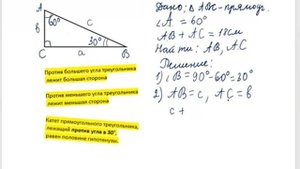 A
60°
в
c
30°
C
a
B
Против большего угла треугольника
лежит большая сторона
Против меньшего угла треугольника
лежит меньшая сторона
Катет прямоугольного треугольника,
лежащий против угла в 30°,
равен половине гипотенузы.
Дано: Δ ABC - прямоуг.
∠A = 60°
AB + AC = 18см
Найти: AB, AC
Решение:
1) ∠B = 90° - 60° = 30°
2) AB = c, AC = в
c +